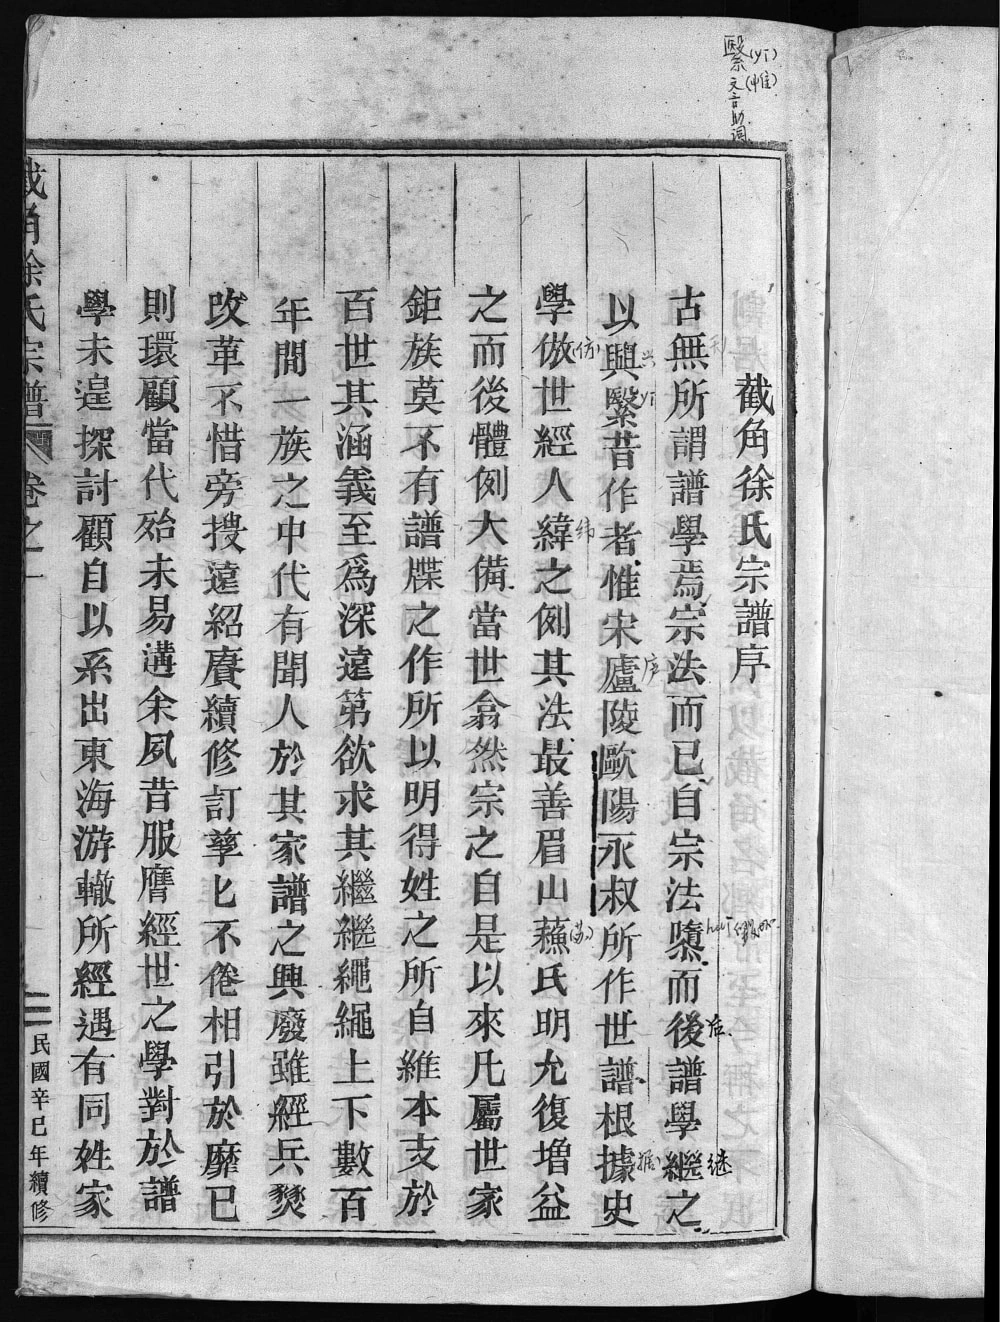 截角徐氏宗譜序
古無所謂譜學焉宗法而已自宗法隳而後譜學繼之
以興繄昔作者惟宋廬陵歐陽永叔所作世譜根據史
學倣世經人緯之例其法最善眉山蘓氏明允復增益
之而後體例大備當世翕然宗之自是以來凡屬世家
鉅族莫不有譜牒之作所以明得姓之所自維本支於
百世其涵義至爲深遠第欲求其繼繼繩繩上下數百
年間一族之中代有聞人於其家譜之興廢雖經兵燹
改革不惜旁搜遠紹賡續修訂孳匕不倦相引於靡已
則環顧當代殆未易遘余夙昔服膺經世之學對於譜
學未遑探討顧自以系出東海游轍所經遇有同姓家
截角徐氏宗譜 卷之一 二 民國辛巳年續修
繄(yi)
(惟)
文言助詞
无
兴
yi
(仿)
纬
庐
(苏)
hui
后
继
(据)